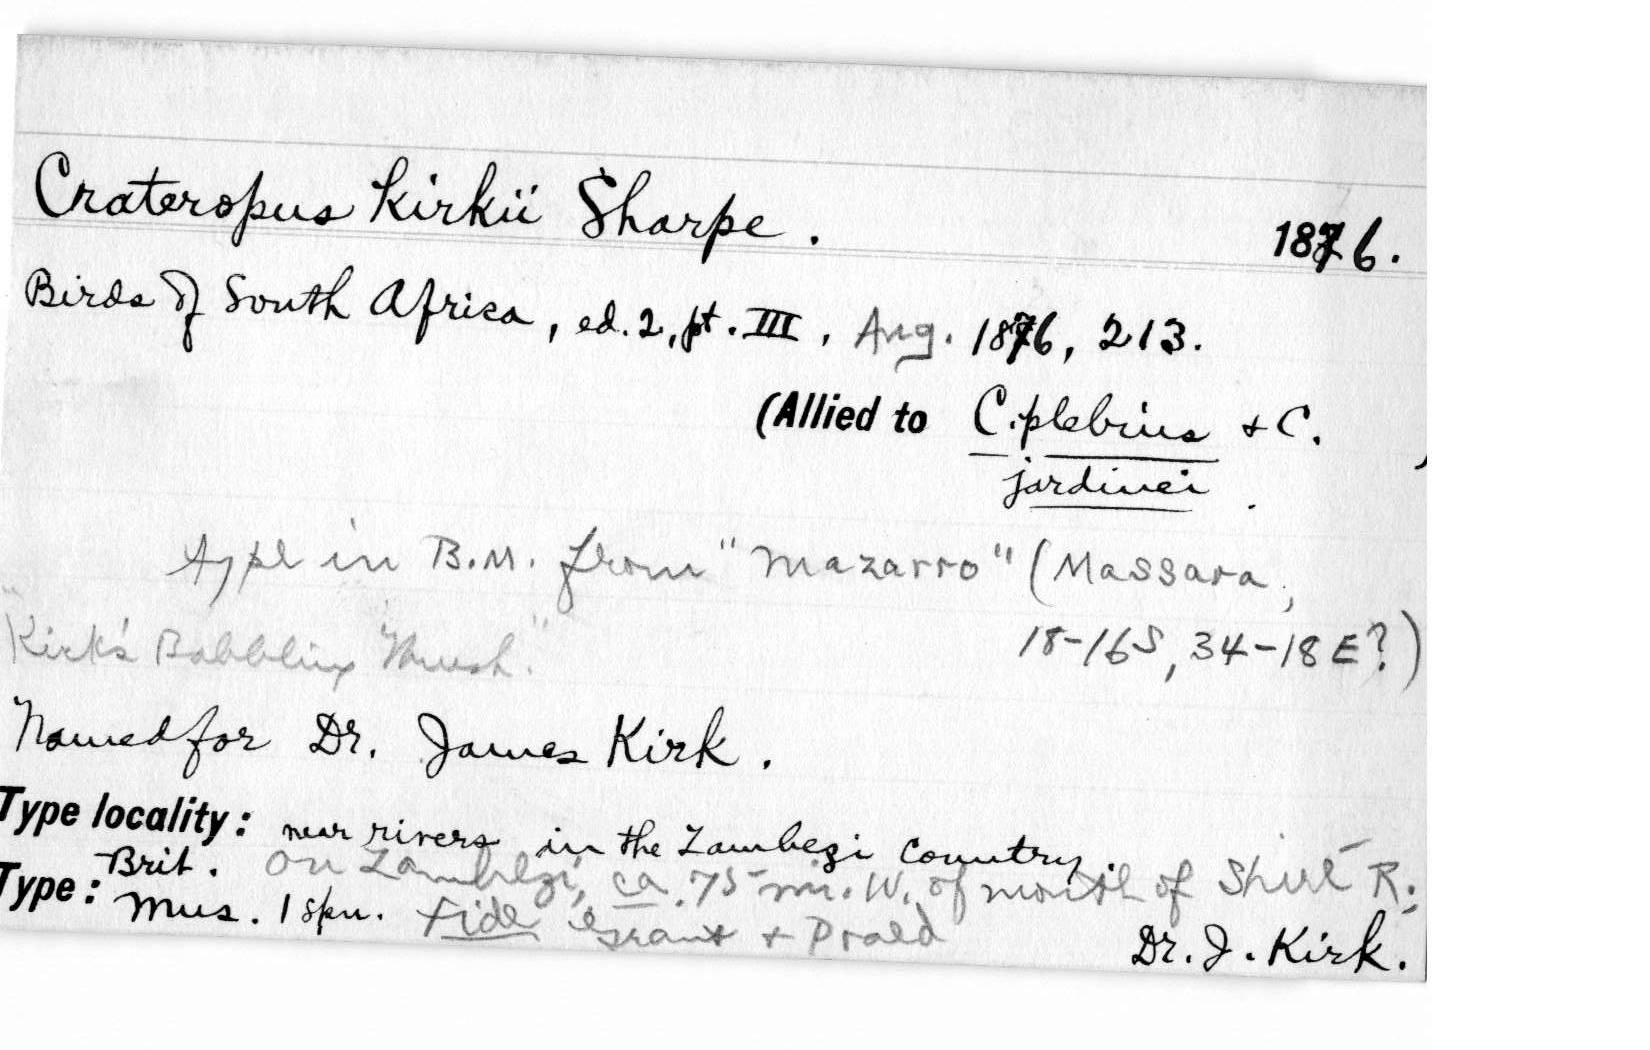 Crateropus Kirkii Sharpe. 1876.
Birds of South Africa, ed. 2, pt. III, Aug. 1876, 213.
(Allied to C. plebeius + C. )
jardinei.
Type in B.M. from "Mazarro" (Massara,
18-16S, 34-18 E?)
"Kirk's Babbling Thrush."
Named for Dr. James Kirk.
Type locality: near rivers in the Zambezi Country.
On Zambezi, ca. 75 mi. W. of mouth of Shire R;
Type: Brit. Mus. 1 spn. fide Grant + Praed
Dr. J. Kirk.